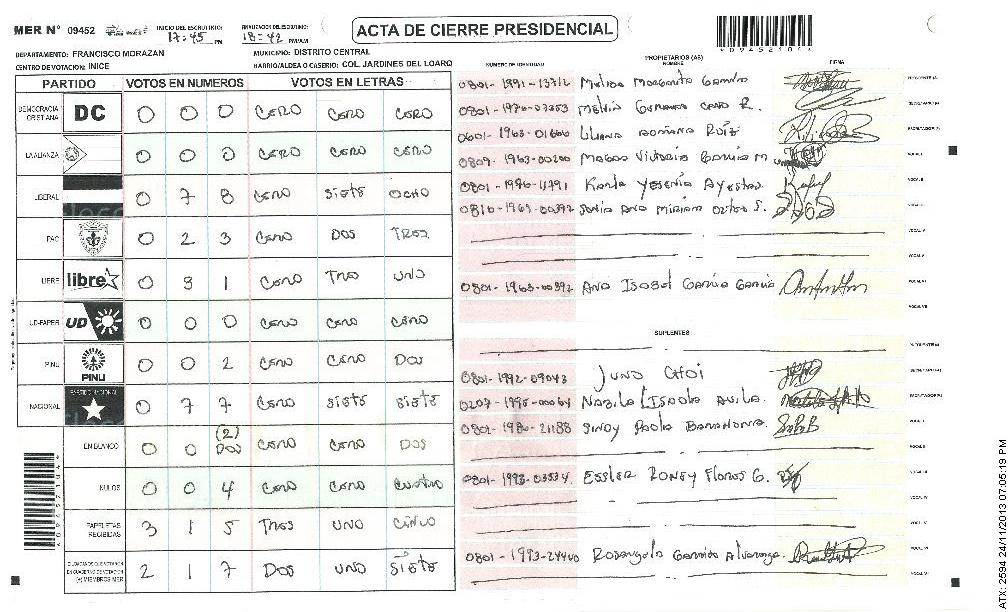 MER N° 09452 INICIO DEL ESCRUTINIO: 17:45 PM FINALIZACION DEL ESCRUTINIO: 18:42 PM/AM ACTA DE CIERRE PRESIDENCIAL
DEPARTAMENTO: FRANCISCO MORAZAN MUNICIPIO: DISTRITO CENTRAL
CENTRO DE VOTACION: INICE BARRIO/ALDEA O CASERIO: COL JARDINES DEL LOARQ
PARTIDO VOTOS EN NUMEROS VOTOS EN LETRAS
DEMOCRACIA CRISTIANA DC 0 0 0 CERO CERO CERO
LA ALIANZA 0 0 0 CERO CERO CERO
LIBERAL 0 7 8 CERO SIETE OCHO
PAC 0 2 3 CERO DOS TRES
LIBRE libre 0 3 1 CERO TRES UNO
UD-FAPER UD 0 0 0 CERO CERO CERO
PINU PINU 0 0 2 CERO CERO DOS
NACIONAL PARTIDO NACIONAL 0 7 7 CERO SIETE SIETE
EN BLANCO 0 0 (2) DOS CERO CERO DOS
NULOS 0 0 4 CERO CERO CUATRO
PAPELETAS RECIBIDAS 3 1 5 TRES UNO CINCO
CIUDADANOS QUE VOTARON EN CUADERNO DE VOTACION (+) MIEMBROS MER 2 1 7 DOS UNO SIETE
PROPIETARIOS (AS)
NUMERO DE IDENTIDAD NOMBRE FIRMA
0801-1991-13712 Melissa Margarita
0801-1976-07353 Melvin R.
0601-1963-01600 Liliana Ruiz
0809-1963-00200 Victoria Garcia M
0801-1986-11791 Karla Yesenia
0810-1969-00392 Sonia Miriam S.
0801-1963-00392 Ana Isabel Garcia Garcia
SUPLENTES
0801-1992-09043 Juno
0207-1995-00064 Avila.
0801-1980-21188 Sindy Paola Barahona.
0801-1993-03534 Essler Roney Flores G.
0801-1993-24440 Rosangela Garrido Alvarenga.
ATX: 2594 24/11/2013 07:05:19 PM